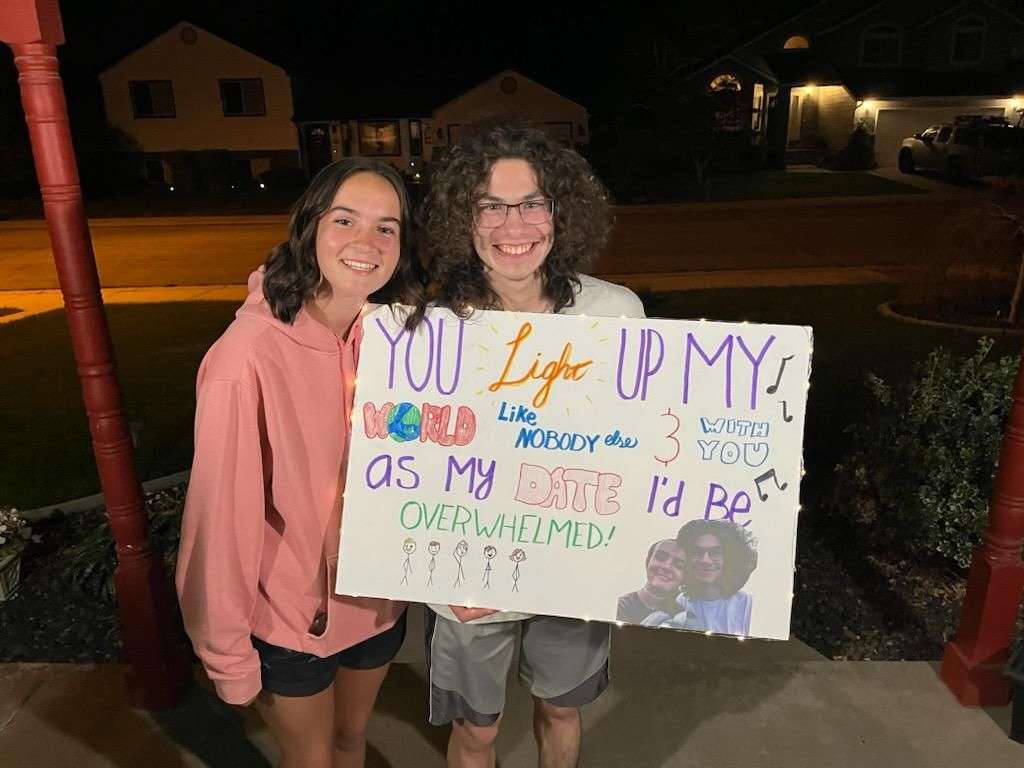 YOU Light UP MY
WORLD Like NOBODY else & WITH YOU
as MY DATE I'd Be
OVERWHELMED!